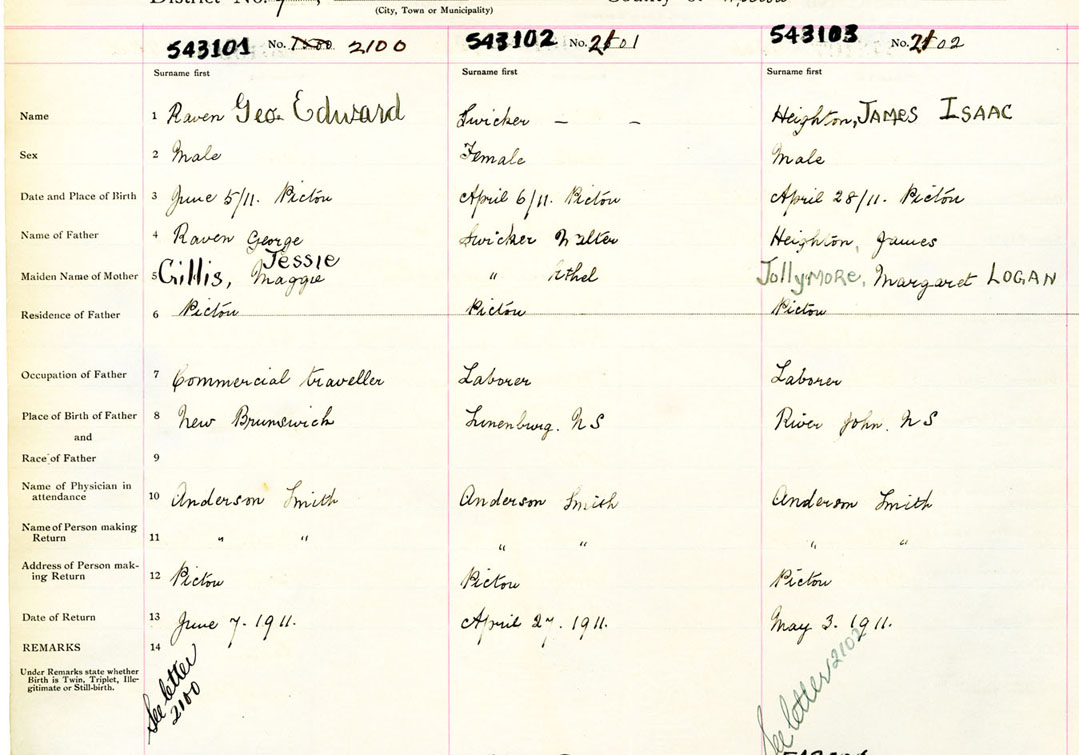 District No. 7,
County of Pictou
(City, Town or Municipality)
543101 No. 2100 543102 No. 2101 543103 No. 2102
Surname first Surname first Surname first
Name 1 Raven Geo. Edward Swicker — — Heighton, JAMES ISAAC
Sex 2 Male Female Male
Date and Place of Birth 3 June 5/11. Pictou April 6/11. Pictou April 28/11. Pictou
Name of Father 4 Raven George Swicker Walter Heighton, James
Jessie
Maiden Name of Mother 5 Gillis, Maggie " Ethel JollyMORE, Margaret LOGAN
Residence of Father 6 Pictou Pictou Pictou
Occupation of Father 7 Commercial traveller Laborer Laborer
Place of Birth of Father 8 New Brunswick Lunenburg. NS River John. NS
and
Race of Father 9
Name of Physician in
attendance 10 Anderson Smith Anderson Smith Anderson Smith
Name of Person making
Return 11 " " " " " "
Address of Person mak-
ing Return 12 Pictou Pictou Pictou
Date of Return 13 June 7. 1911. April 27. 1911. May 3. 1911.
REMARKS 14
Under Remarks state whether
Birth is Twin, Triplet, Ille-
gitimate or Still-birth.
See letter
2100
See letter 2102